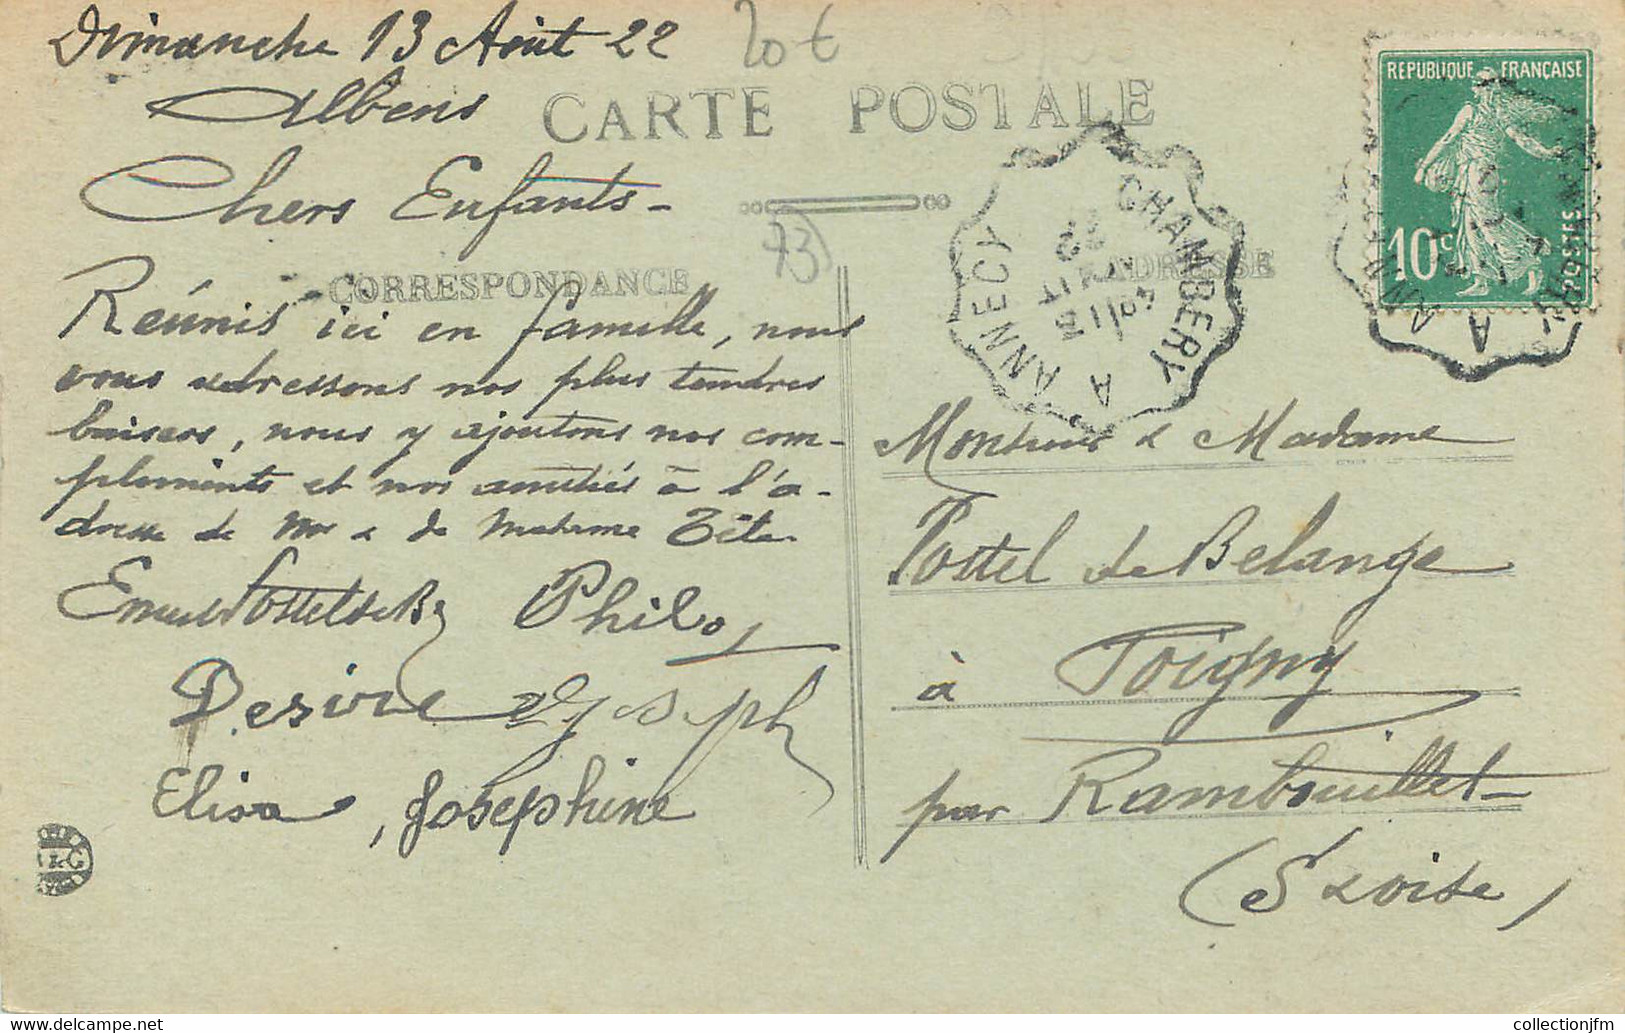 Dimanche 13 Août 22
20 €
Albens
CARTE POSTALE
Chers Enfants -
73
CORRESPONDANCE
Réunis ici en famille, nous
vous adressons nos plus tendres
baisers, nous y ajoutons nos com-
pliments et nos amitiés à l'a-
dresse de Mr & de Madame Tito
Philo,
Desiré Joseph
Elisa, Josephine
ADRESSE
CHAMBERY A ANNECY
REPUBLIQUE FRANÇAISE
10c POSTES
Monsieur & Madame
Postel de Belange
à Poigny
par Rambouillet -
(S & Oise)
collectionjfm